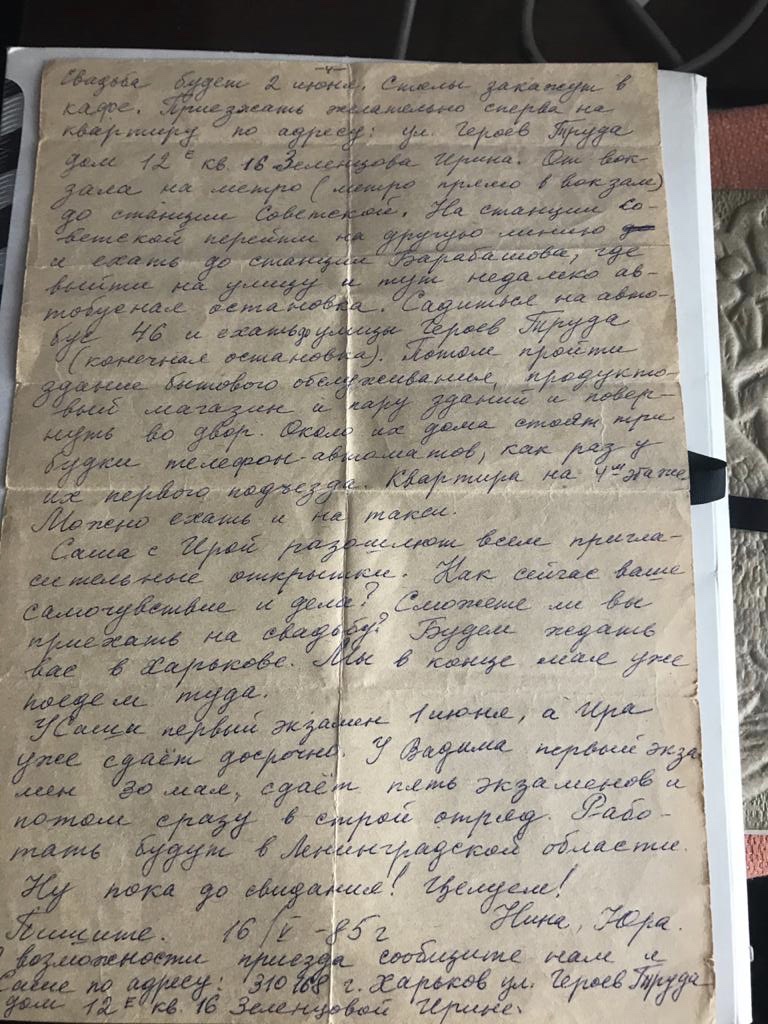 -4-
Свадьба будет 2 июня. Столы закажут в
кафе. Приезжать желательно сперва на
квартиру по адресу: ул. Героев Труда
дом 12Е кв. 16 Зеленцова Ирина. От вок-
зала на метро (метро прямо в вокзале)
до станции Советской. На станции Со-
ветской перейти на другую линию
и ехать до станции Барабашова, где
выйти на улицу и тут недалеко ав-
тобусная остановка. Садиться на авто-
бус 46 и ехать до улицы Героев Труда
(конечная остановка). Потом пройти
здание бытового обслуживанья, продукто-
вый магазин и пару зданий и повер-
нуть во двор. Около их дома стоят три
будки телефон-автоматов, как раз у
их первого подъезда. Квартира на 4ом этаже
Можно ехать и на такси.
Саша с Ирой разошлют всем пригла-
сительные открытки. Как сейчас ваше
самочувствие и дела? Сможете ли вы
приехать на свадьбу? Будем ждать
вас в Харькове. Мы в конце мая уже
поедем туда.
У Саши первый экзамен 1 июня, а Ира
уже сдаёт досрочно. У Вадима первый экза
мен 30 мая, сдаёт пять экзаменов и
потом сразу в строй отряд. Рабо-
тать будут в Ленинградской области.
Ну пока до свидания! Целуем!
Пишите. 16/V -85 г Нина, Юра.
О возможности приезда сообщите нам и
Саше по адресу: 310168 г. Харьков ул. Героев Труда
дом 12Е кв. 16 Зеленцовой Ирине.